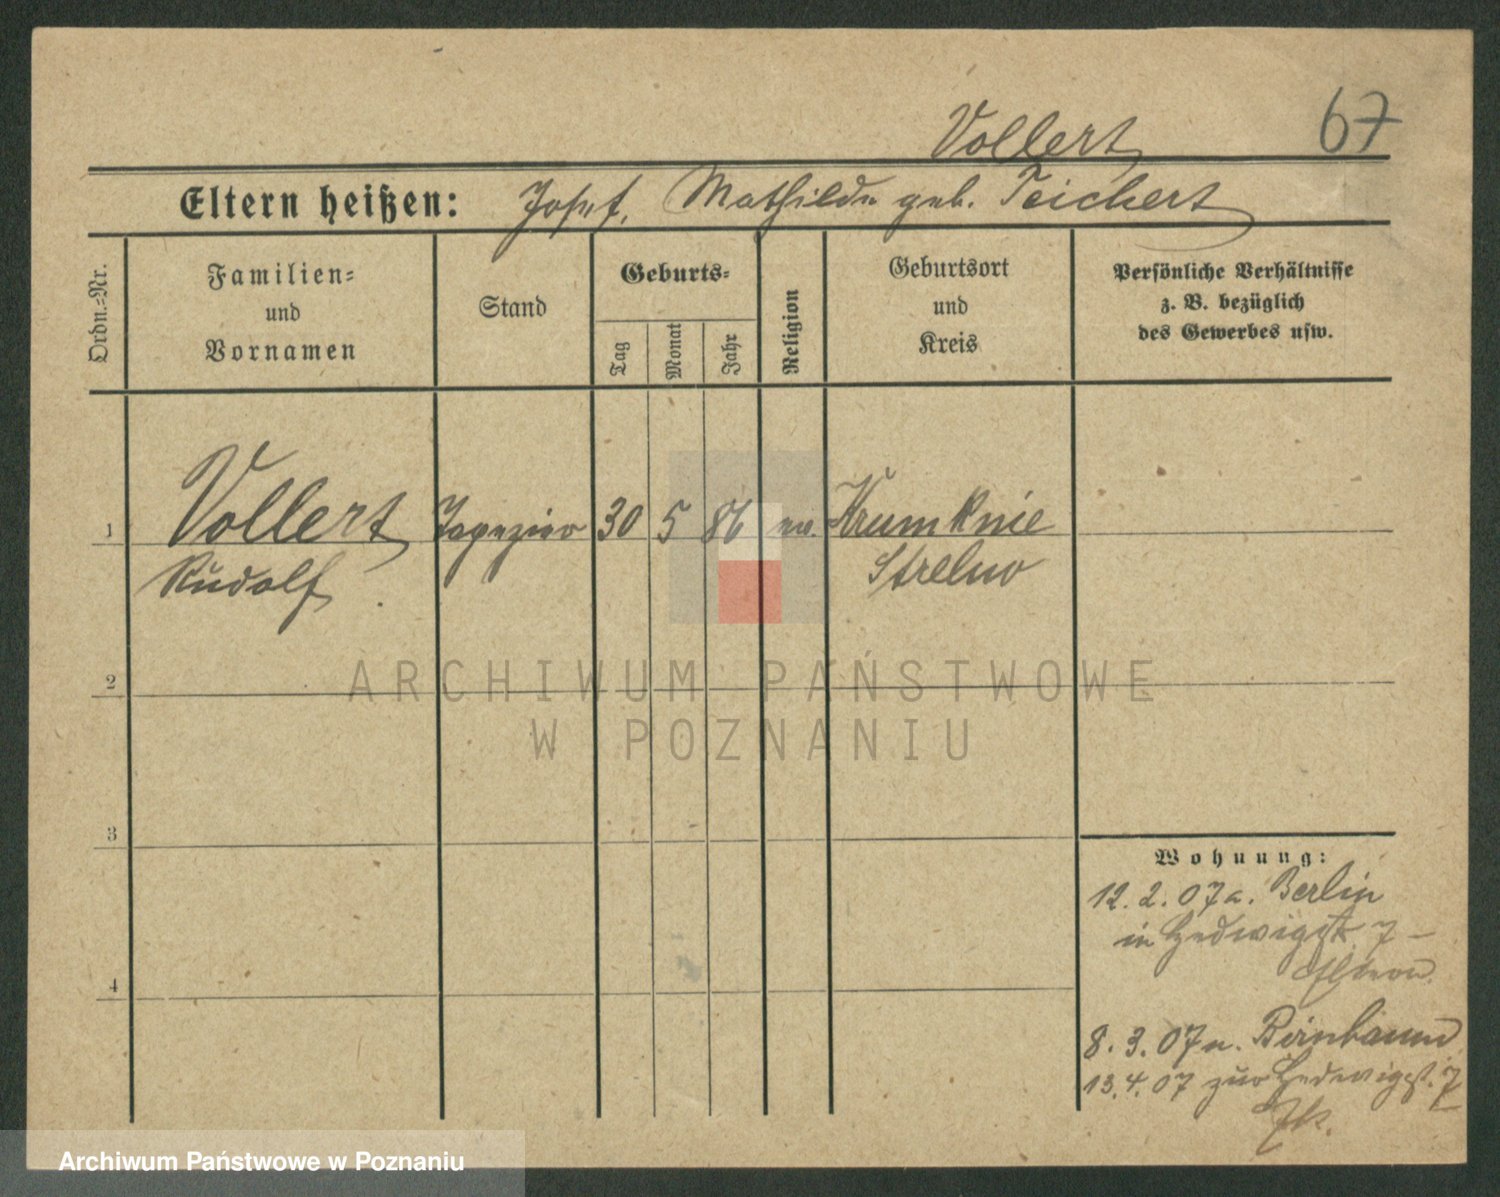 67
Vollert
Eltern heißen: Josef, Mathilde geb. Teichert
Ordn.-Nr.
Familien-
und
Vornamen
Stand
Geburts-
Tag
Monat
Jahr
Religion
Geburtsort
und
Kreis
Persönliche Verhältnisse
z. B. bezüglich
des Gewerbes usw.
1 Vollert Tapezier 30 5 86 ev. Krumknie
Rudolf Strelno
2
3
4
Wohnung:
12.2.07 a. Berlin
in Hedwigst. 7 –
Eltern.
8.3.07 n. Birnbaum
13.4.07 zur Hedwigst. 7
ARCHIWUM PAŃSTWOWE
W POZNANIU
Archiwum Państwowe w Poznaniu